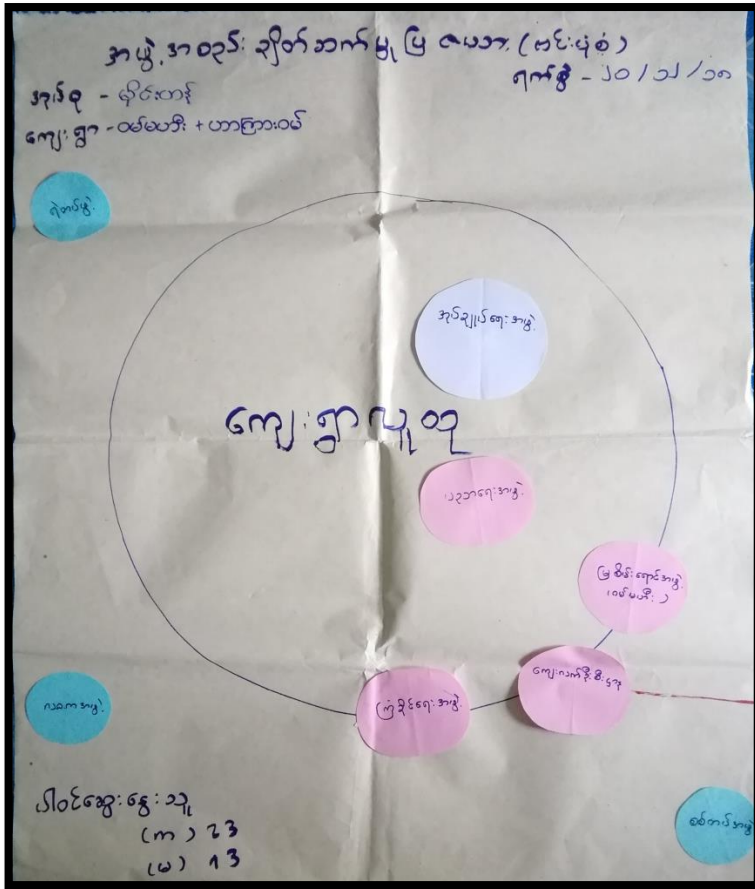 အဖွဲ့အစည်း ချိတ်ဆက်မှု ပြ ဇယား (ဗင်းပုံစံ)
ရက်စွဲ - ၂၀/၁၂/၁၈
အုပ်စု - မိုင်းဟန်
ကျေးရွာ - ဝမ်မဟီး + ဟာကြားဝမ်
ရဲတပ်ဖွဲ့
အုပ်ချုပ်ရေးအဖွဲ့
ကျေးရွာလူထု
ပညာရေးအဖွဲ့
မြစိမ်းရောင်အဖွဲ့
(ဝမ်မဟီး)
ကျေးလက်ဦးစီးဌာန
ကြံ့ခိုင်ရေးအဖွဲ့
စစ်တပ်အဖွဲ့
ပါဝင်ဆွေးနွေးသူ
(ကျ) 23
(မ) 13